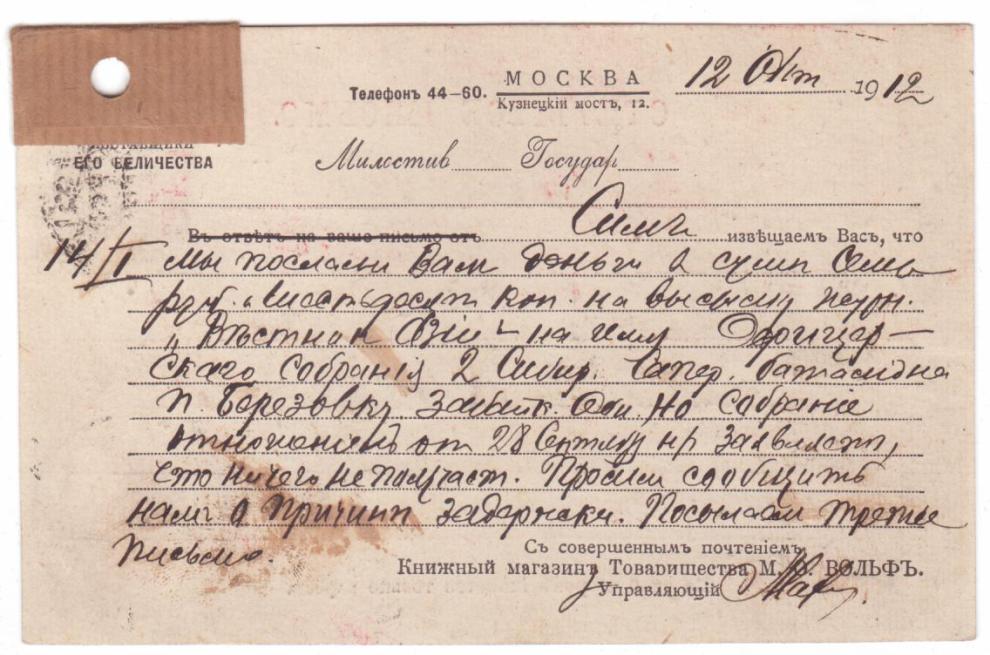 МОСКВА
Телефонъ 44—60.
Кузнецкій мостъ, 12.
12 Окт 1912
ЕГО ВЕЛИЧЕСТВА
Милостив Государ
Въ отвѣтъ на ваше письмо отъ Симъ извѣщаемъ Васъ, что
14/I мы послали Вамъ деньги в сумѣ семь
руб. шестьдесят коп. на высылку журн.
„Вѣстник на имя Офицер—
скаго собранія 2 Сибир. Сапер. баталіона
п. Березовку Забайк. Обл. Но собраніе
отношеніемъ от 28 Сентября заявляетъ,
что ничего не получает. Просим сообщить
намъ о причинѣ задержки. Посылаем третье
письмо.
Съ совершеннымъ почтеніемъ,
Книжный магазинъ Товарищества М. О. ВОЛЬФЪ.
Управляющій